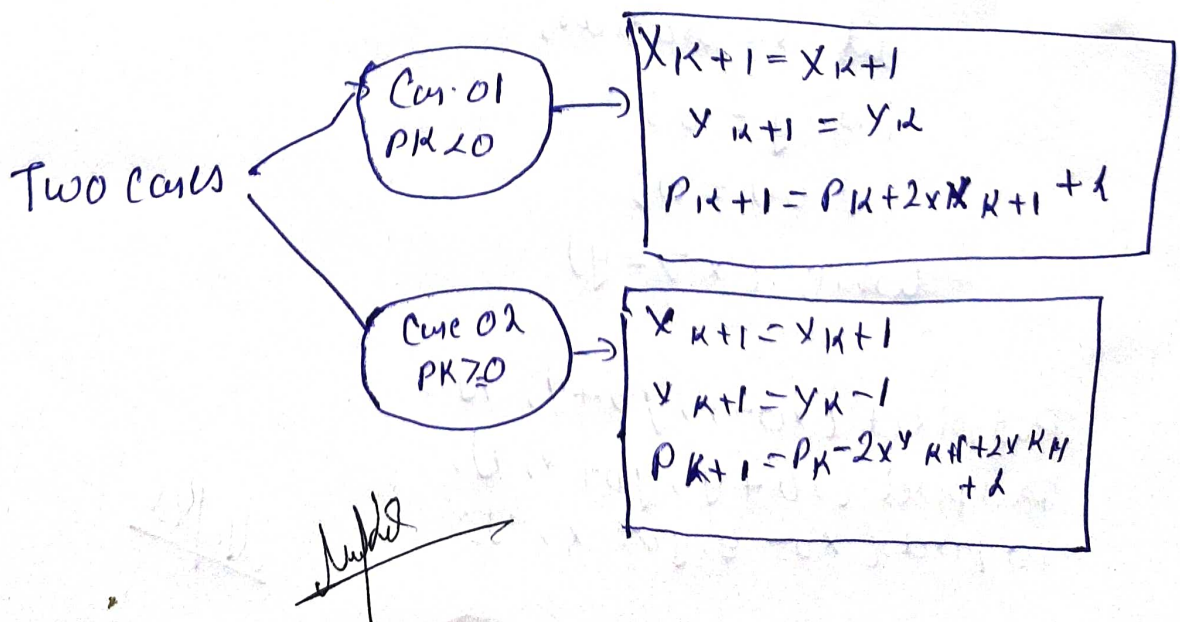 Two cases
Cas. 01
PK < 0
XK+1 = XK+1
YK+1 = YK
PK+1 = PK + 2 x XK+1 + 1
Case 02
PK ≥ 0
XK+1 = XK+1
YK+1 = YK - 1
PK+1 = PK - 2 x YK+1 + 2 x K+1
+ 1